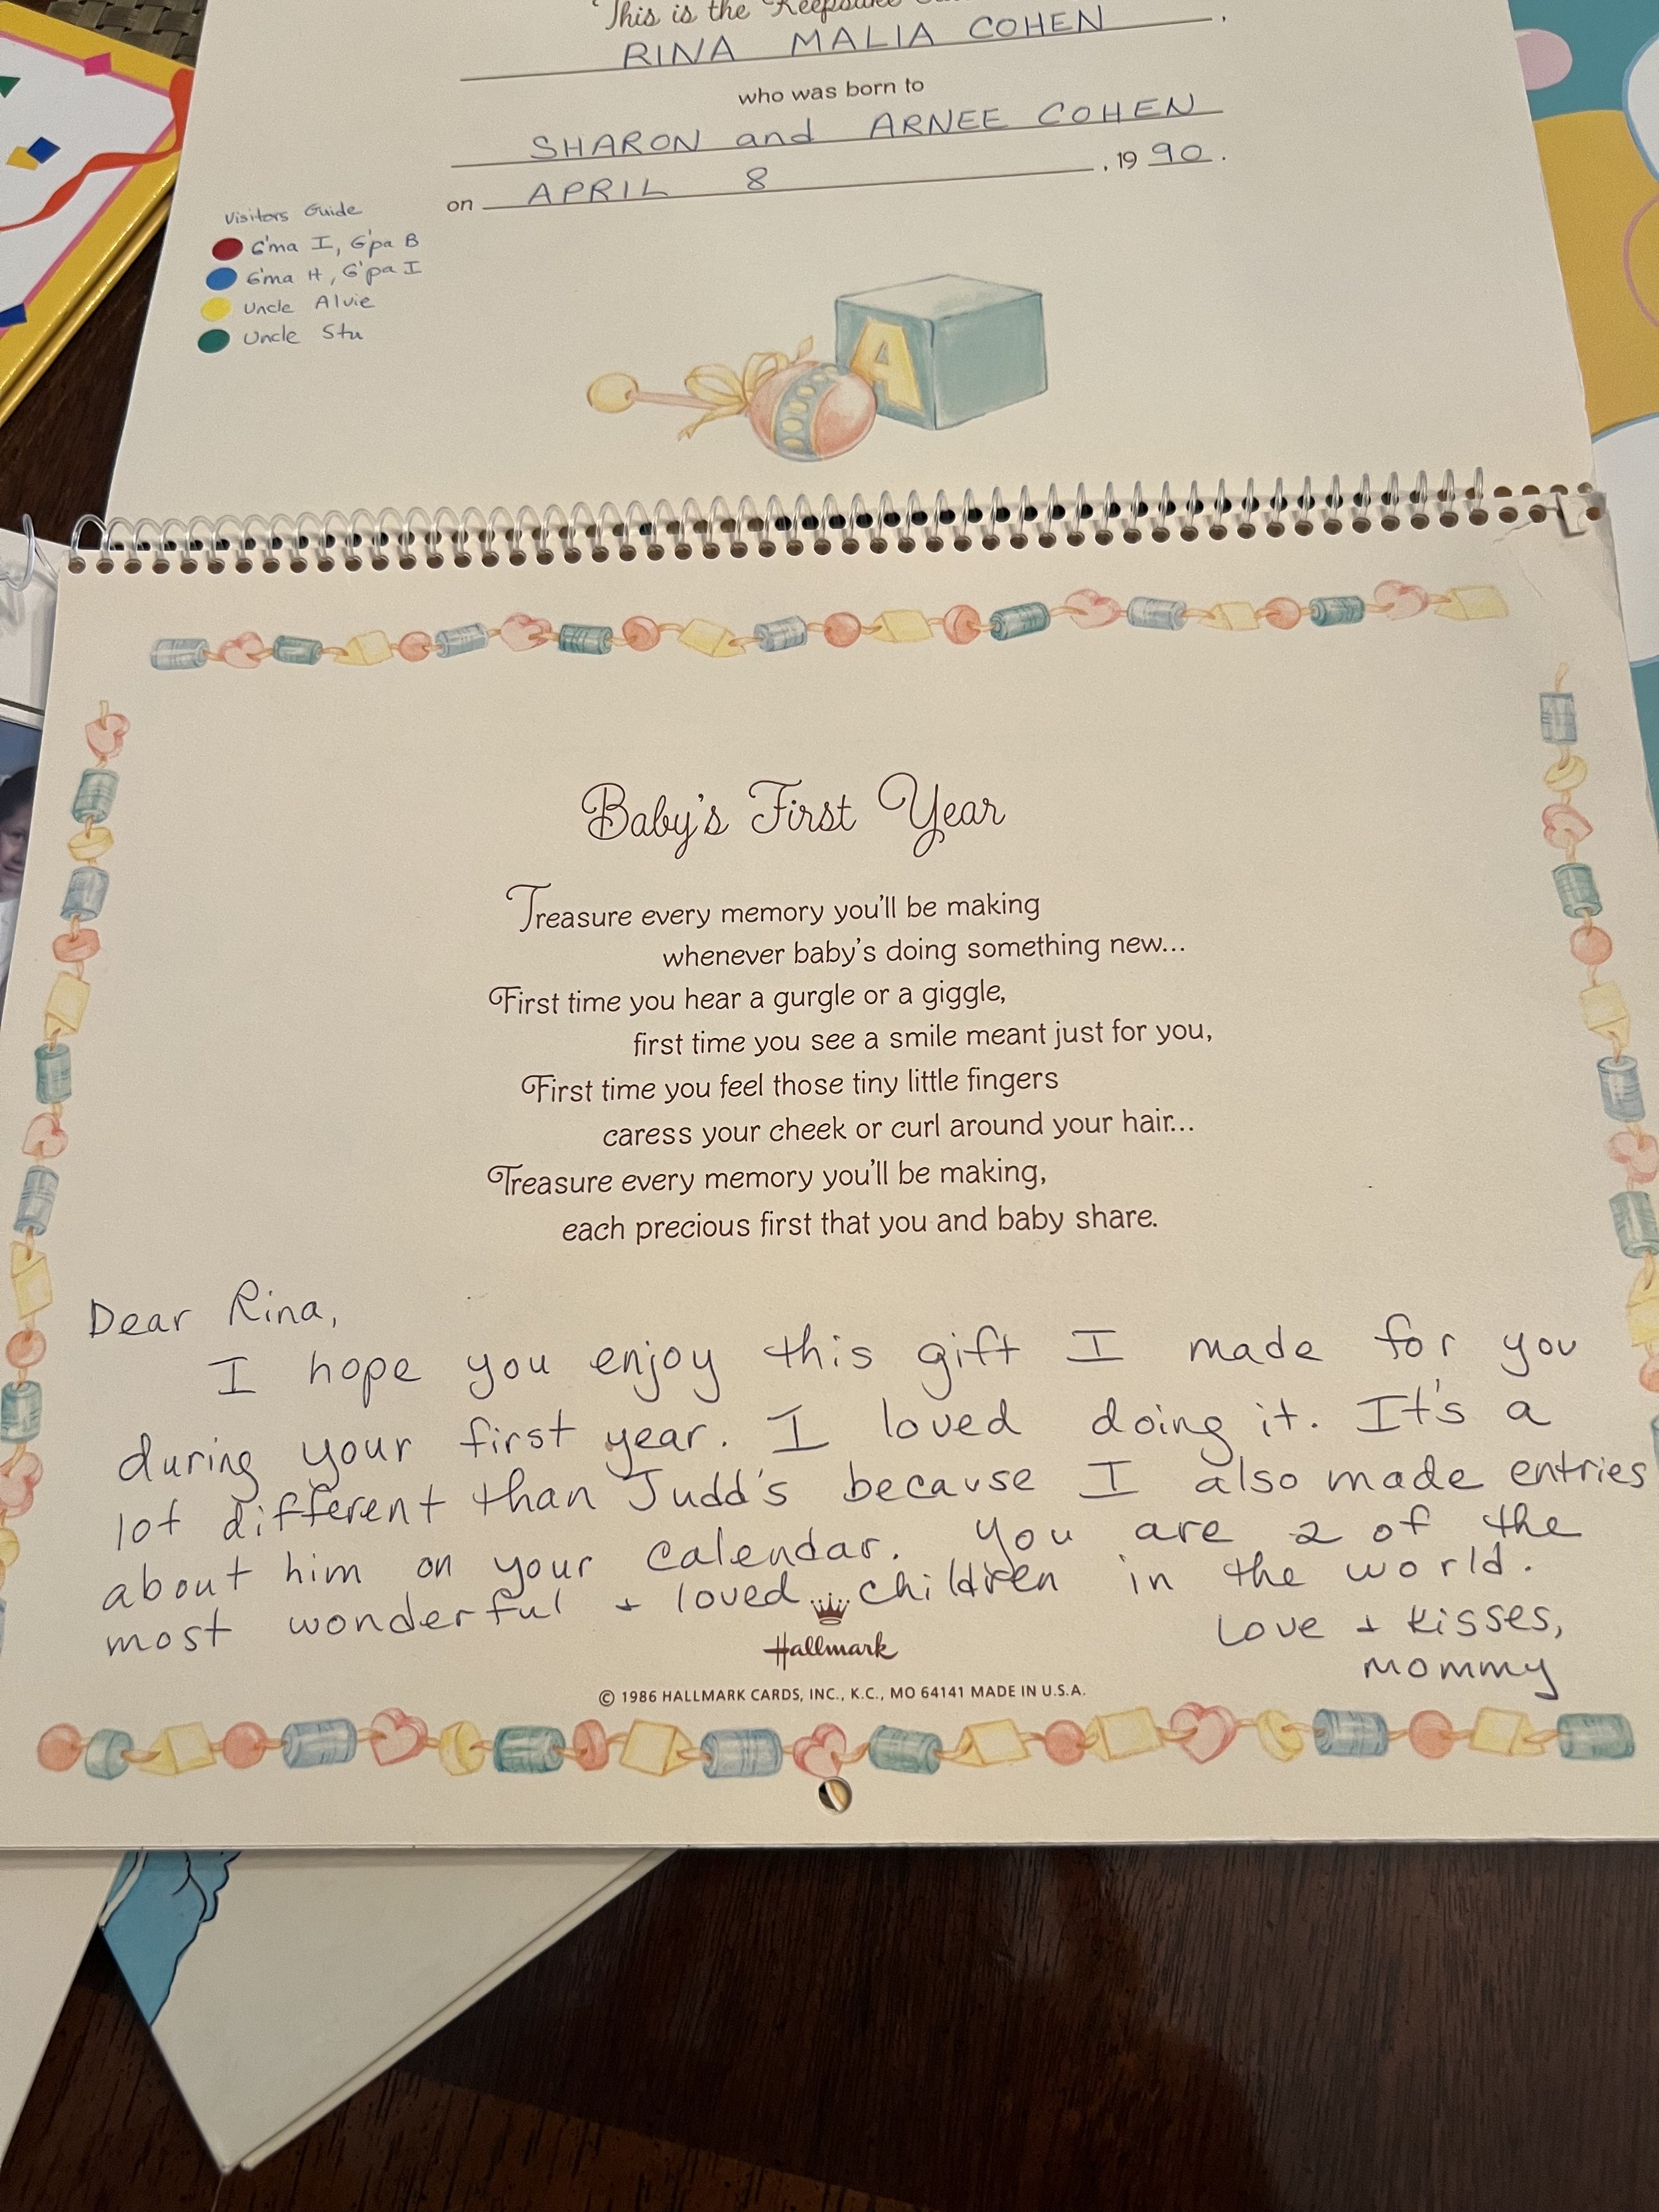 This is the Keepsake
RINA MALIA COHEN.
who was born to
SHARON and ARNEE COHEN
on APRIL 8, 1990.
Visitors Guide
G'ma I, G'pa B
G'ma H, G'pa I
Uncle Alvie
Uncle Stu
A
Baby's First Year
Treasure every memory you'll be making
whenever baby's doing something new...
First time you hear a gurgle or a giggle,
first time you see a smile meant just for you,
First time you feel those tiny little fingers
caress your cheek or curl around your hair...
Treasure every memory you'll be making,
each precious first that you and baby share.
Dear Rina,
I hope you enjoy this gift I made for you
during your first year. I loved doing it. It's a
lot different than Judd's because I also made entries
about him on your calendar. You are 2 of the
most wonderful + loved children in the world.
Love + Kisses,
Mommy
Hallmark
© 1986 HALLMARK CARDS, INC., K.C., MO 64141 MADE IN U.S.A.